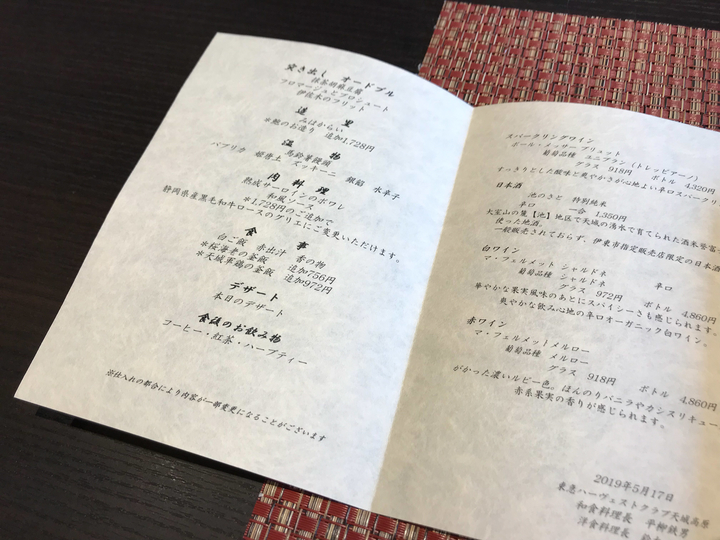 突き出し オードブル
抹茶胡麻豆腐
フロマージュとプロシュート
伊佐木のフリット
造 里
みはからい
※鮑のお造り 追加1,728円
温 物
馬鈴薯饅頭
パプリカ 姫唐土 ズッキーニ 銀餡 水辛子
肉 料 理
熟成サーロインのポワレ
和風ソース
※1,728円のご追加で
静岡県産黒毛和牛ロースのグリエにご変更いただけます。
食 事
白ご飯 赤出汁 香の物
※桜海老の釜飯 追加756円
※天城軍鶏の釜飯 追加972円
デザート
本日のデザート
食後のお飲み物
コーヒー・紅茶・ハーブティー
※仕入れの都合により内容が一部変更になることがございます
スパークリングワイン
ポール・メッサー ブリュット
葡萄品種 ユニブラン(トレッビアーノ)
グラス 918円 ボトル 4,320円
すっきりとした酸味と爽やかさが心地よい辛口スパークリ
日本酒
池のさと 特別純米
辛口 一合 1,350円
大室山の麓【池】地区で天城の湧水で育てられた酒米誉富
使った地酒。
一般販売されておらず、伊東市指定販売店限定の日本酒
白ワイン
マ・フェルメット シャルドネ 辛口
葡萄品種 シャルドネ
グラス 972円 ボトル 4,860円
華やかな果実風味のあとにスパイシーさも感じられます。
爽やかな飲み心地の辛口オーガニック白ワイン。
赤ワイン
マ・フェルメットメルロー
葡萄品種 メルロー
グラス 918円 ボトル 4,860円
がかった濃いルビー色。ほんのりバニラやカシスリキュー
赤系果実の香りが感じられます。
2019年5月17日
東急ハーヴェストクラブ天城高原
和食料理長 平柳鉄男
洋食料理長